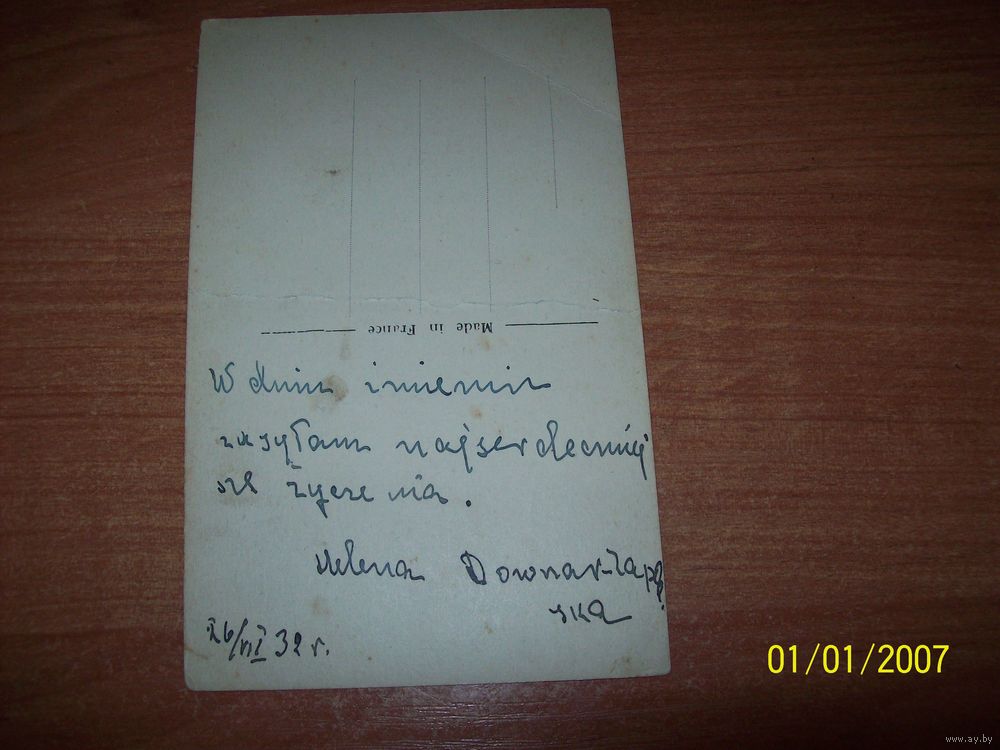 Made in France
W dniu imienin
zasyłam najserdeczniej
sze życzenia.
Helena Downar-Zapol
ska
26/VII 39 r.
01/01/2007
www.ay.by